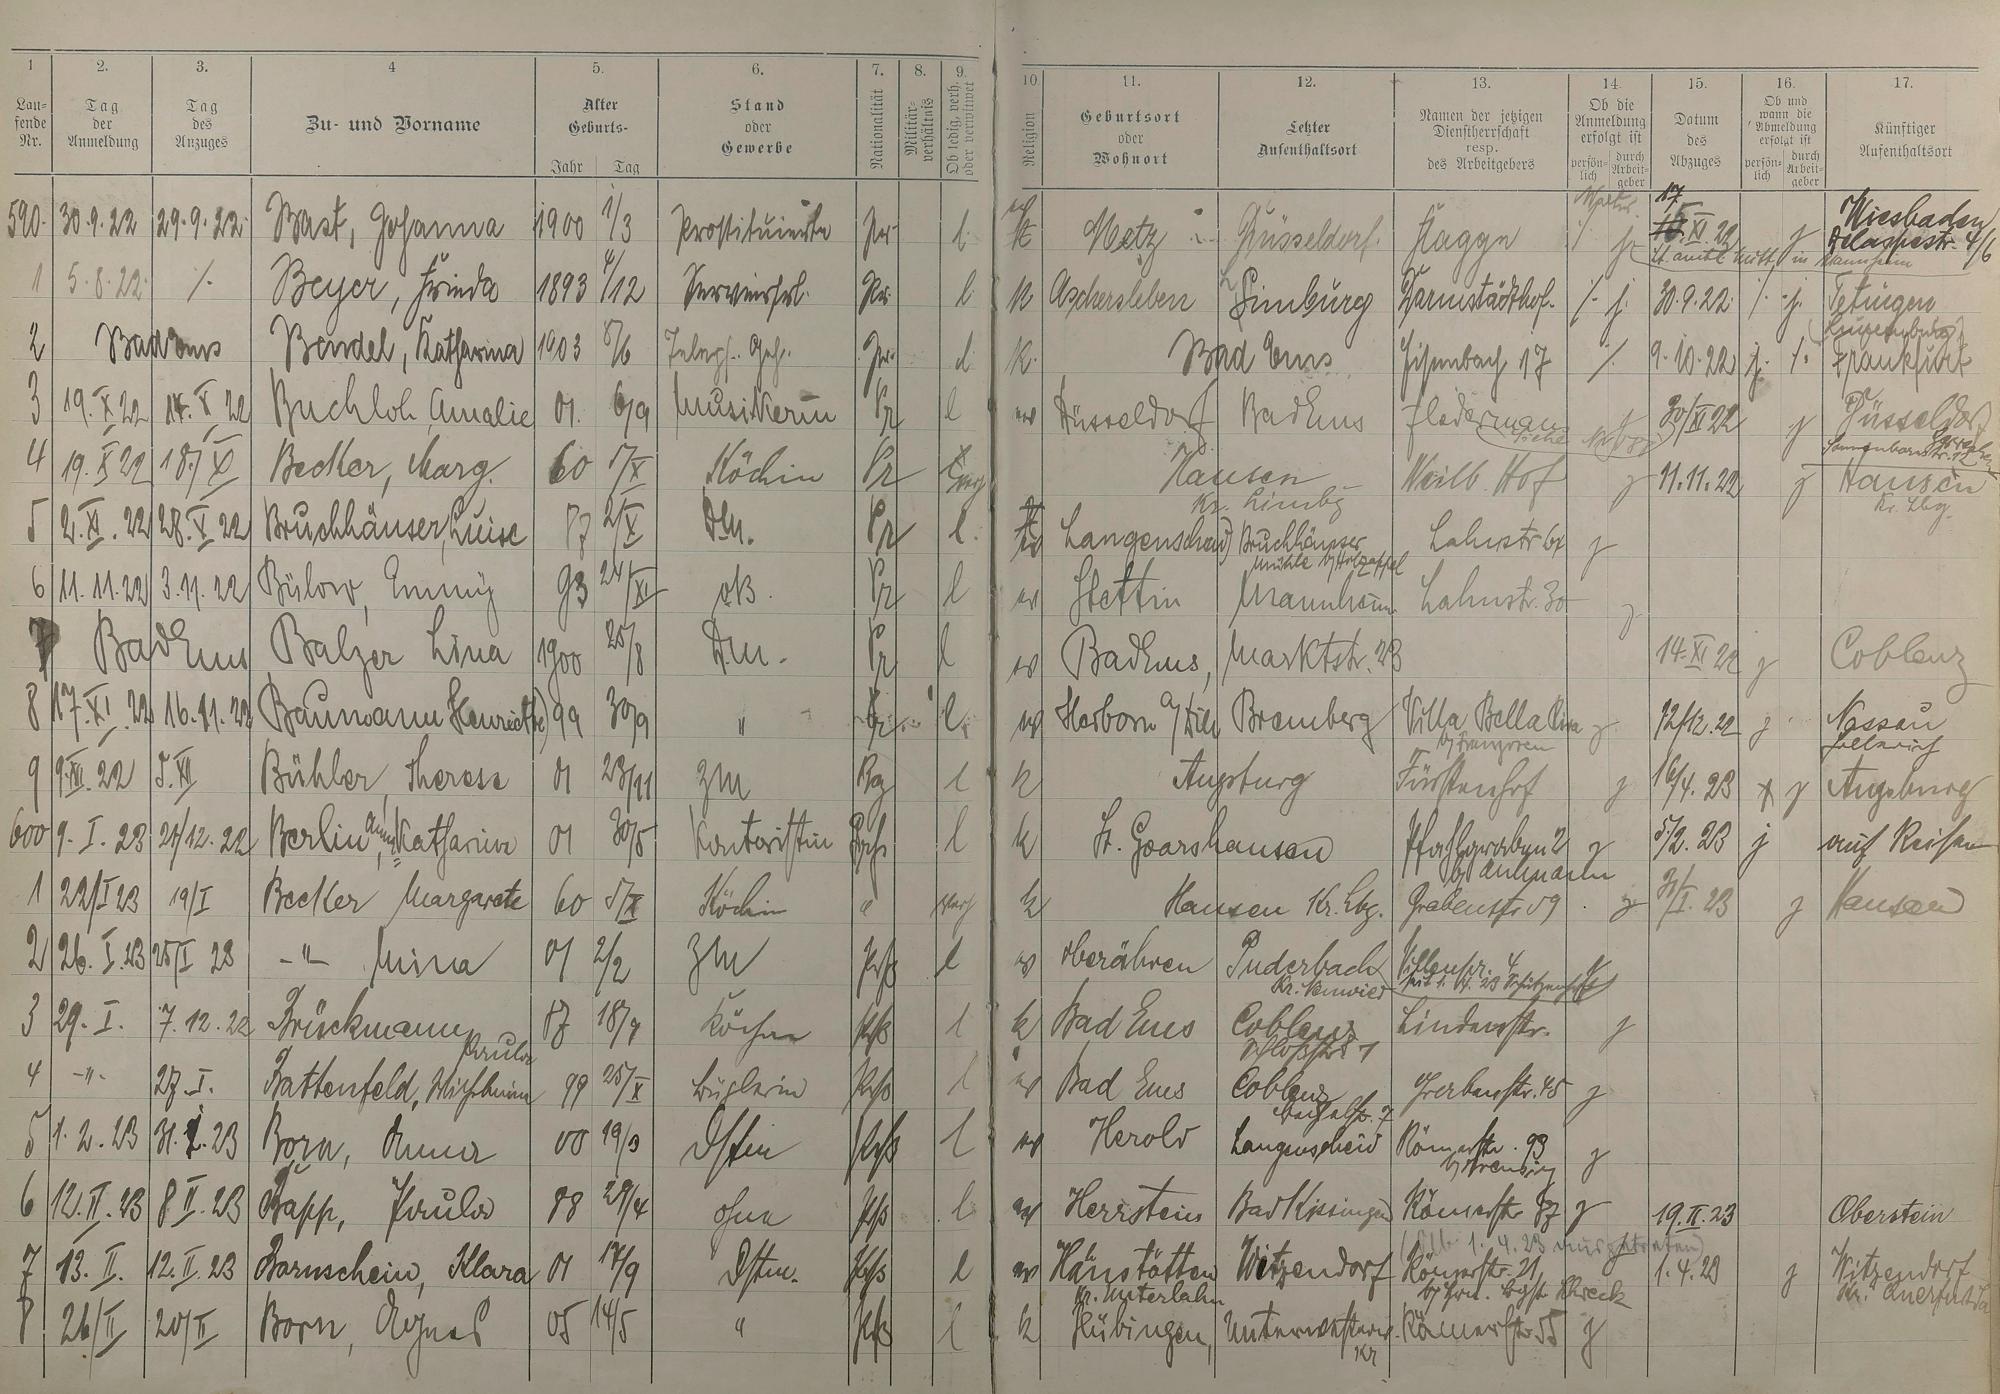 1 2. 3. 4 5. 6. 7. 8. 9. 10 11. 12. 13. 14. 15. 16. 17.
Laufende Nr. Tag der Anmeldung Tag des Anzuges Zu- und Vorname Alter Geburts- Jahr Tag Stand oder Gewerbe Nationalität Militärverhältnis Ob ledig, verh. oder verwitwet Religion Geburtsort oder Wohnort Letzter Aufenthaltsort Namen der jetzigen Dienstherrschaft resp. des Arbeitgebers Ob die Anmeldung erfolgt ist persönlich durch Arbeitgeber Datum des Abzuges Ob und wann die Abmeldung erfolgt ist persönlich durch Arbeitgeber Künftiger Aufenthaltsort
590. 30.9.22 29.9.22 Bast, Johanna 1900 1/3 Prostituierte Pr. l. k Metz Düsseldorf. 17.XI.22 j Wiesbaden
1 5.8.22 /. Beyer, Frieda 1893 4/12 Pr. l. k Aschersleben Limburg Darmstädthof. /. j. 30.9.22 /. j. Tetingen
(Luxemburg)
2 Bad Ems Bendel, Katharina 1903 8/6 Pr. l. k. Bad Ems 17 /. 9.10.22 j. /. Frankfurt
3 19.X 22 14.X 22 Buchloh Amalie 01. 6/9 Musikerin Pr l ev Düsseldorf Bad Ems Fledermaus j 30/XI 22 j Düsseldorf
4 19.X 22 18./X Becker, Marg. 60 5/X Köchin Pr Hausen Weilb. Hof j 11.11.22 j Hausen
Kr. Limbg Kr. Lbg.
5 2.XI.22 28.X 22 Bruchhäuser, Luise 87 2/X Dm. Pr l. ev Langenscheid Bruchhäuser Lahnstr j
Mühle b/Holzappel
6 11.11.22 3.11.22 Bülow, Emmy 93 24/XI oB. Pr l ev Stettin Mannheim Lahnstr. 30 j
7 Bad Ems Balzer Lina 1900 25/8 Dm. Pr l ev Bad Ems, Marktstr. 23 14.XI 22 j Coblenz
8 17.XI.22 16.11.22 Baumann Henriette 99 30/9 " Pr l. ev Herborn a/Dill Bremberg Villa Bella Riva j 12/12.22 j Nassau
9 9.XII.22 5.XII Bühler, Therese 01 23/11 ZM l k Augsburg Fürstenhof j 16/4.23 j Augsburg
600 9.I.23 21/12.22 Berlin, Anna Katharina 01 30/5 Kontoristin l k St. Goarshausen Pfahlgraben 2 j 5/2.23 j auf Reisen
1 22/I 23 19/I Becker Margarete 60 5/X Köchin " k Hausen Kr. Lbg. Grabenstr 59 j 31/I.23 j Hausen
2 26.I.23 25/I 23 -"- Mina 01 2/2 ZM Prß l ev Oberähren Puderbach Villenpr. 4
Kr. Neuwied
3 29.I. 7.12.22 Brückmann Paula 87 18/9 Köchin Prß l k Bad Ems Coblenz Lindenstr. j
4 -"- 27.I. Battenfeld, Wilhelmine 99 25/X Büglerin Prß l ev Bad Ems Coblenz 45 j
5 1.2.23 31.1.23 Born, Anna 00 19/3 Dstm Prß l ev Herold Langenscheid Römerstr. 93 j
6 12.II.23 8 II.23 Bapp, Paula 88 29/4 ohne Prß l ev Herrstein Bad Kissingen Römerstr 87 j 19.II.23 Oberstein
7 13.II. 12.II.23 Bornschein, Klara 01 17/9 Dstm. Prß l ev Hahnstätten Witzendorf Römerstr. 21, 1.4.23 j Witzendorf
Kr. Unterlahn
8 26/II 20/II Born, Agnes 05 14/5 " Prß l k Hübingen, Unterwesterw. Römerstr 55 j
Kr